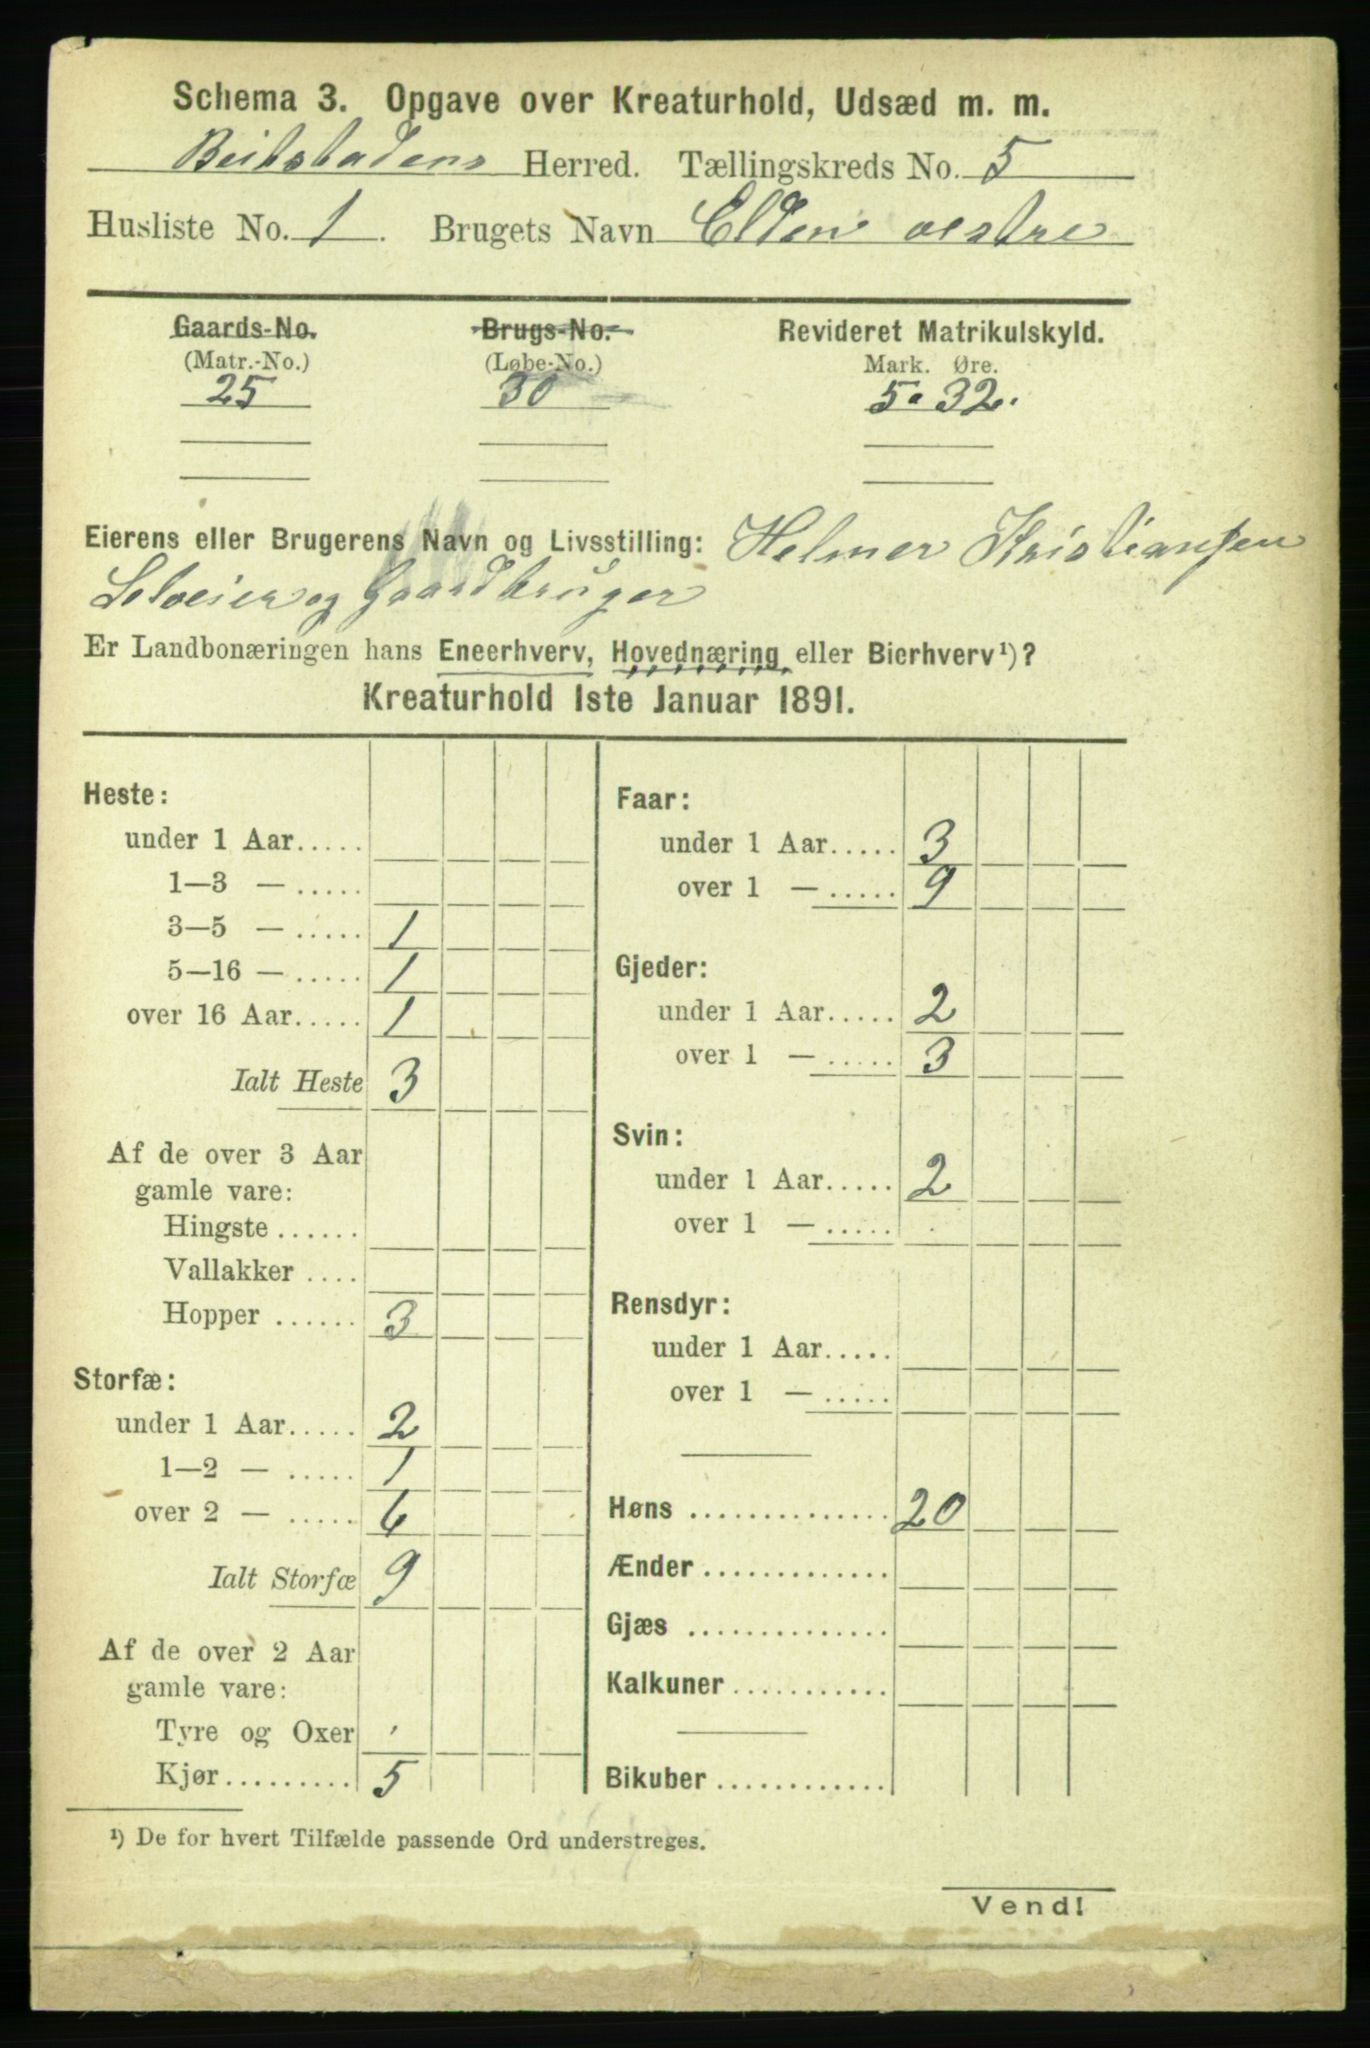 Schema 3. Opgave over Kreaturhold, Udsæd m. m.
Beitstadens Herred. Tællingskreds No. 5
Husliste No. 1. Brugets Navn Elden vestre
Gaards-No. Brugs-No. Revideret Matrikulskyld.
(Matr.-No.) (Løbe-No.) Mark. Øre.
25 30 5. 32.
Eierens eller Brugerens Navn og Livsstilling: Helmer Kristiansen
Selveier og Gaardbruger
Er Landbonæringen hans Eneerhverv, Hovednæring eller Bierhverv¹)?
Kreaturhold 1ste Januar 1891.
Heste:
under 1 Aar.....
1—3 — .....
3—5 — ..... 1
5—16 — ..... 1
over 16 Aar..... 1
Ialt Heste 3
Af de over 3 Aar
gamle vare:
Hingste ......
Vallakker ....
Hopper ...... 3
Storfæ:
under 1 Aar..... 2
1—2 — ..... 1
over 2 — ..... 6
Ialt Storfæ 9
Af de over 2 Aar
gamle vare:
Tyre og Oxer
Kjør......... 5
Faar:
under 1 Aar..... 3
over 1 — ..... 9
Gjeder:
under 1 Aar..... 2
over 1 — ..... 3
Svin:
under 1 Aar..... 2
over 1 — .....
Rensdyr:
under 1 Aar.....
over 1 — .....
Høns .............. 20
Ænder .............
Gjæs ..............
Kalkuner ...........
Bikuber .............
¹) De for hvert Tilfælde passende Ord understreges.
Vend!